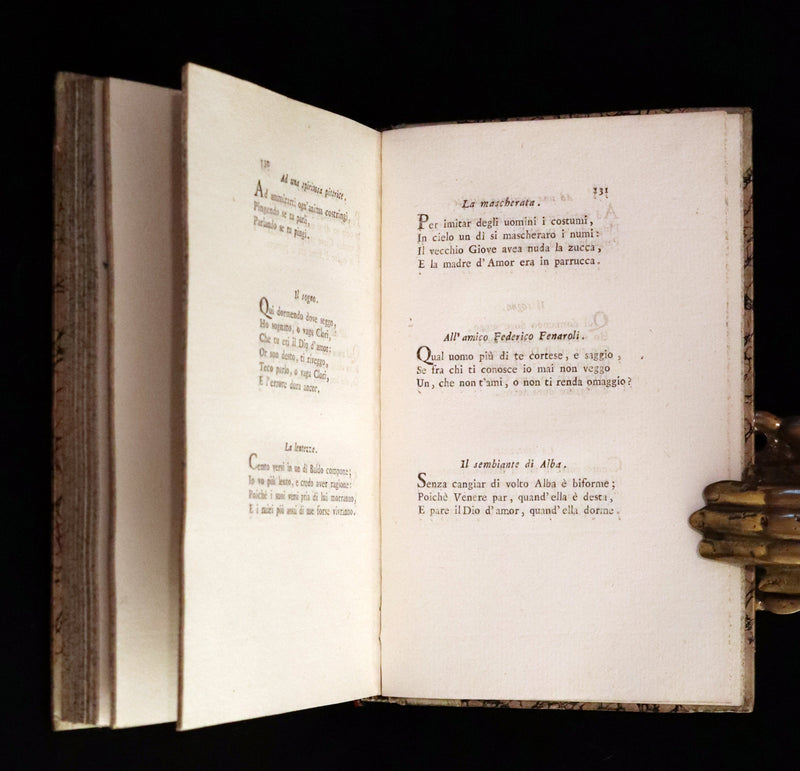 130
Ad una spiritosa pittrice.
Ad ammirarti ogn'anima costringi,
Pingendo se tu parli,
Parlando se tu pingi.
Il sogno.
Qui dormendo dove seggo,
Ho sognato, o vaga Clori,
Che tu eri il Dio d'amor:
Or son desto, ti riveggo,
Teco parlo, o vaga Clori,
E l'errore dura ancor.
La lentezza.
Cento versi in un dì Baldo compone;
Io vo più lento, e credo aver ragione:
Poichè i suoi versi pria di lui morranno,
E i miei più assai di me forse vivranno.
131
La mascherata.
Per imitar degli uomini i costumi,
In cielo un dì si mascheraro i numi:
Il vecchio Giove avea nuda la zucca,
E la madre d'Amor era in parrucca.
All' amico Federico Fenaroli.
Qual uomo più di te cortese, e saggio,
Se fra chi ti conosce io mai non veggo
Un, che non t'ami, o non ti renda omaggio?
Il sembiante di Alba.
Senza cangiar di volto Alba è biforme;
Poichè Venere par, quand' ella è desta,
E pare il Dio d'amor, quand' ella dorme.